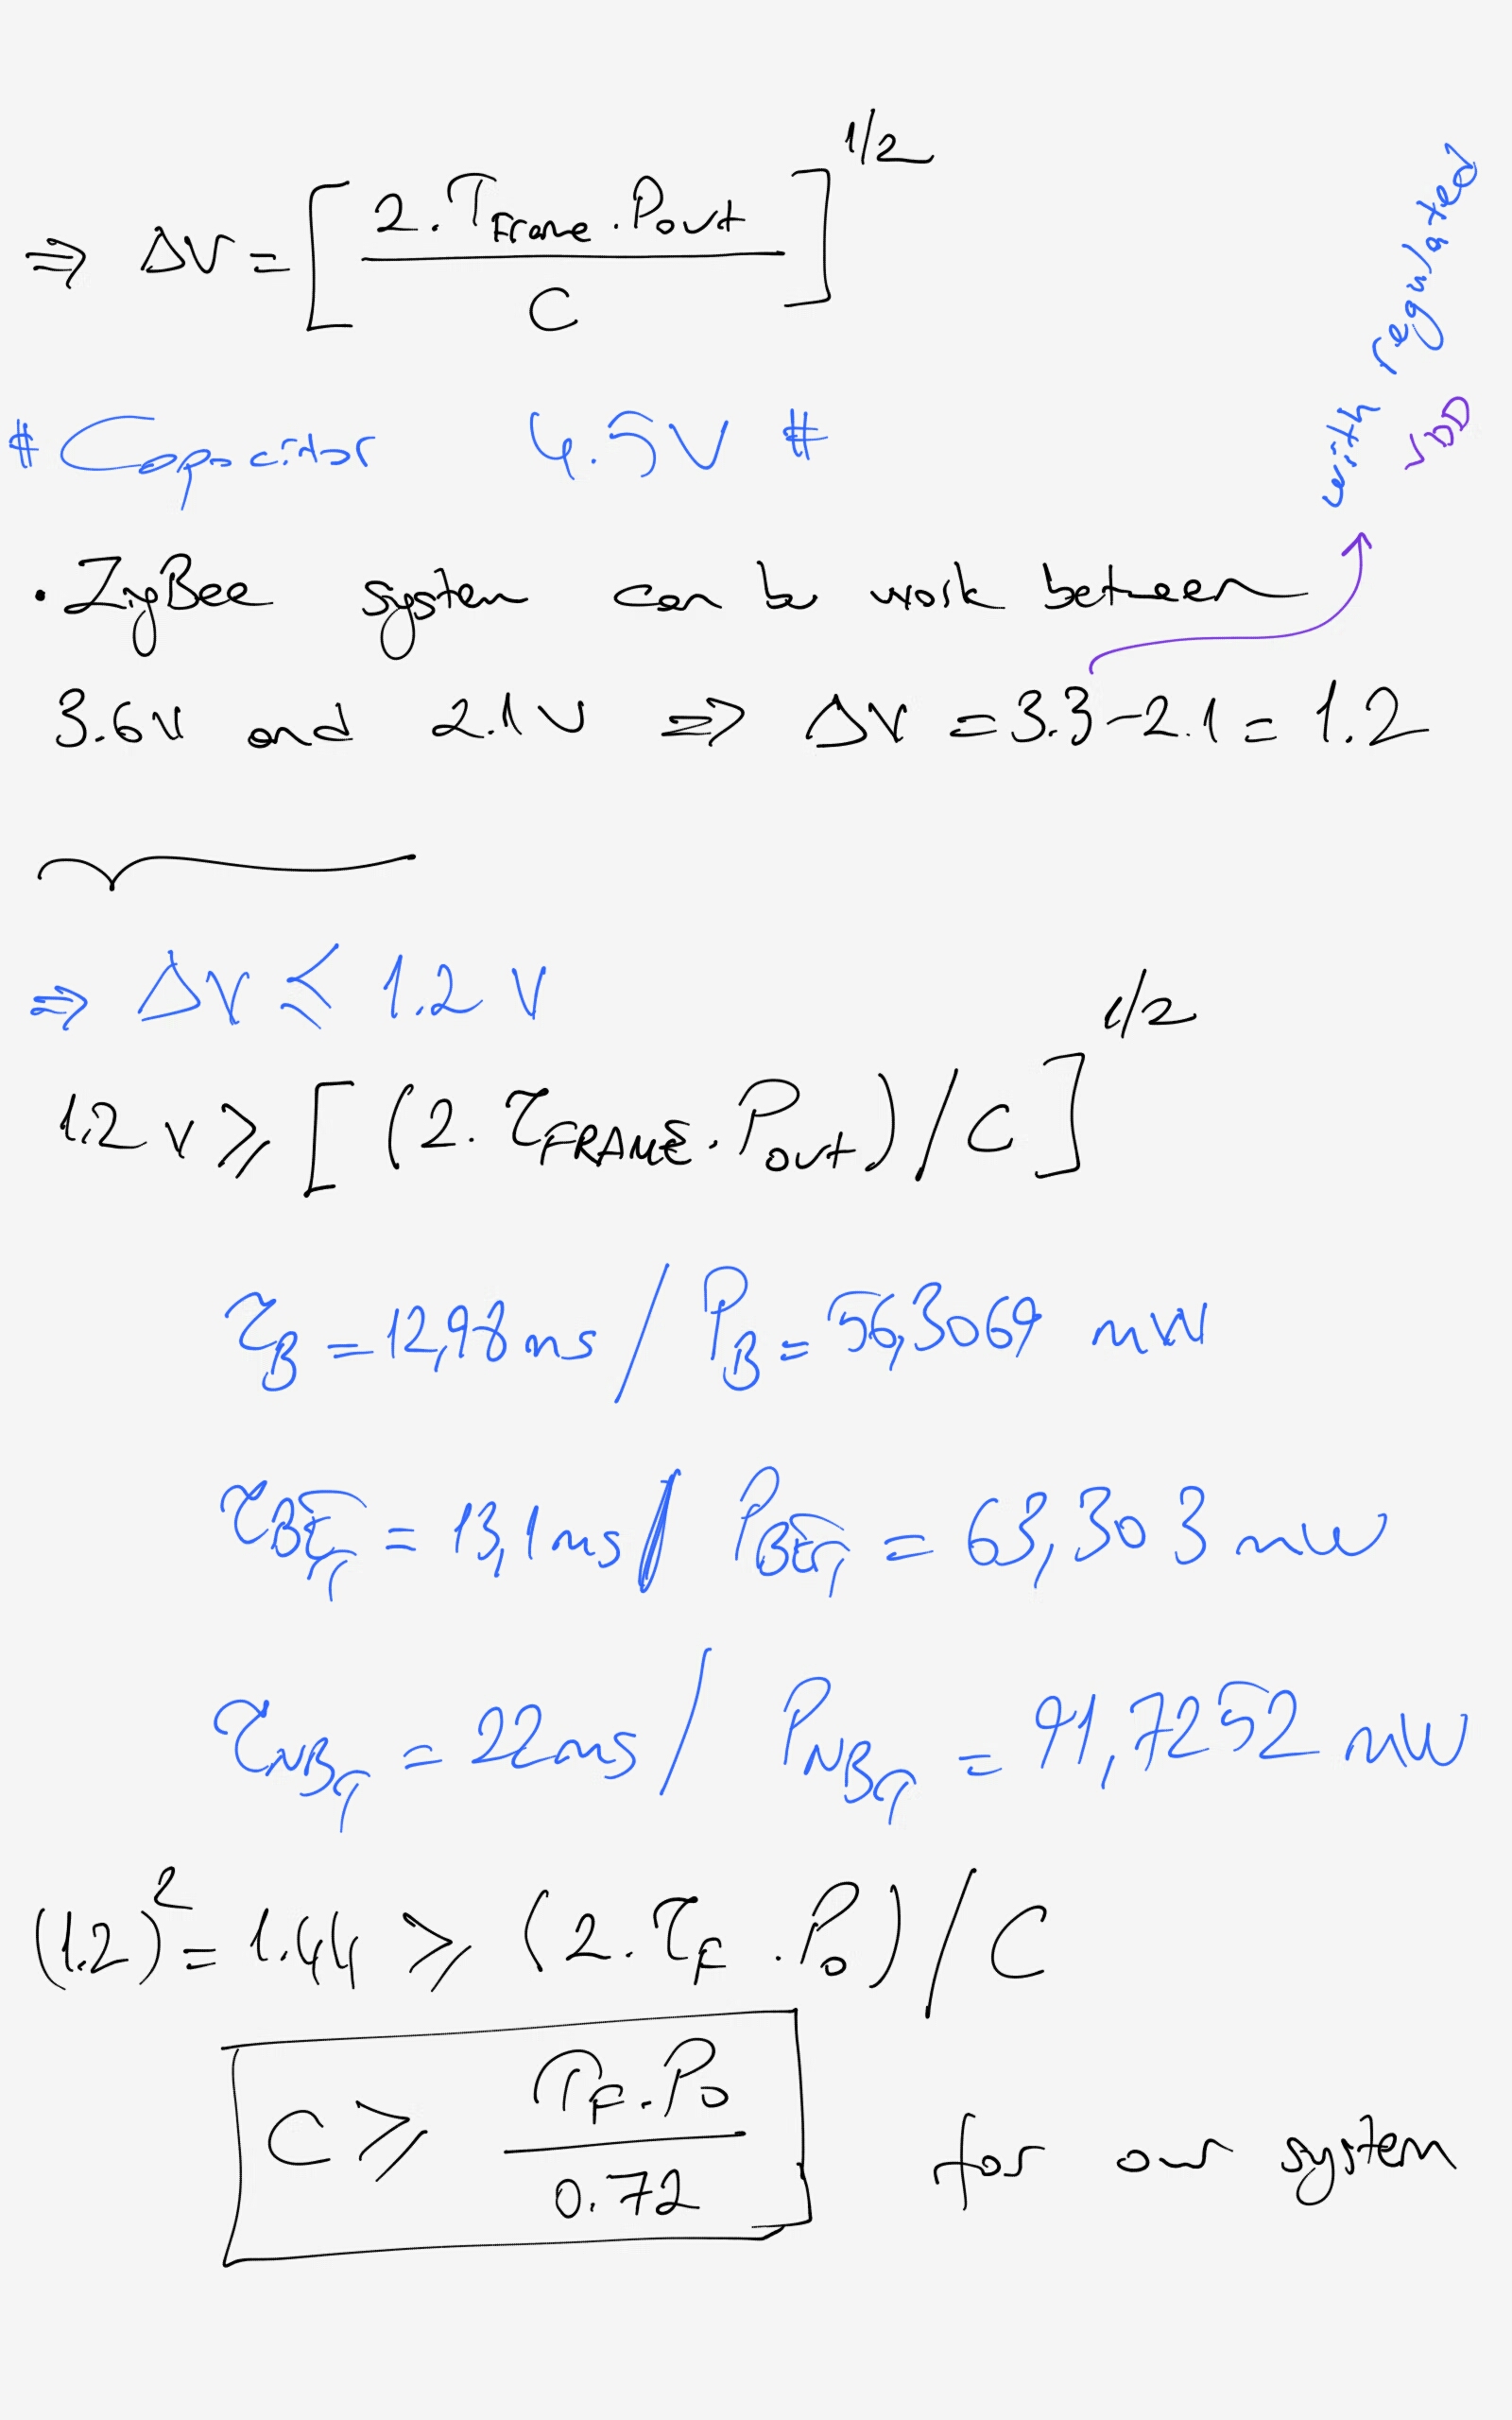 ⇒ ΔV = [ 2.T_Frame . Pout / C ]^1/2
with regulated
VDD
# Capacitor 4.5V #
. ZigBee system can be work between
3.6V and 2.1V ⇒ ΔV = 3.3-2.1 = 1.2
⇒ ΔV ≤ 1.2 V
1.2 V ≥ [ (2. τ_FRAME . P_out) / C ]^1/2
τ_B = 12,98 ms / P_B = 56,3069 mW
= 13,1 ms / = 63,303 mW
τ_NBq = 22ms / P_NBq = 91,7252 mW
(1.2)^2 = 1.44 ≥ (2. τ_F . P_o) / C
C ≥ τ_F . P_o / 0.72 for our system